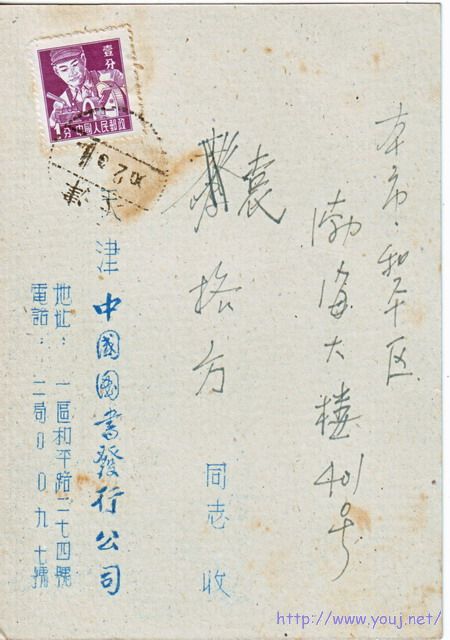 本市·和平区
渤海大楼401号
袁
格方
同志 收
天津
中國圖書發行公司
地址：一區和平路二七四號
電話：二局〇〇九七號
壹分
1分 中國人民郵政
http://www.youj.net